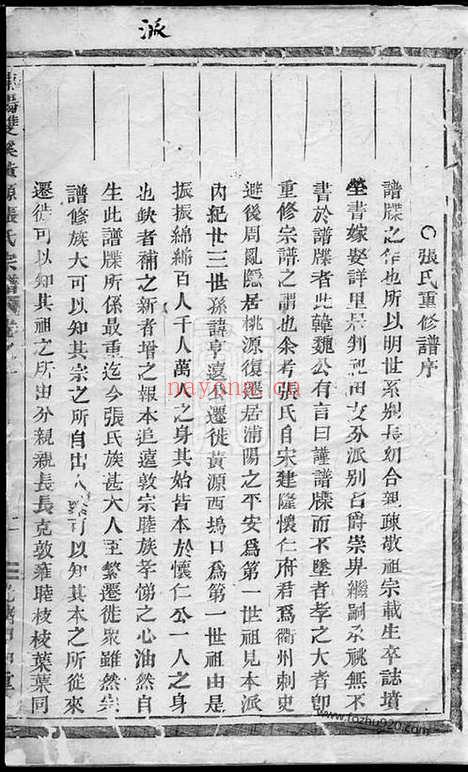 派
○張氏重修譜序
譜牒之作也所以明世系別長幼合親疎敬祖宗載生卒誌墳
塋書嫁娶詳里居判祀田支分派別名爵崇卑繼嗣承祧無不
書於譜牒者此韓魏公有言曰謹譜牒而不墜者孝之大者卽
重修宗譜之謂也余考張氏自宋建隆懷仁府君爲衢州刺史
避後周亂隱居桃源復遷居浦陽之平安爲第一世祖見本派
內紀廿三世孫諱亨遠公遷徙黃源西塢口爲第一世祖由是
振振綿綿百人千人萬人之身其始皆本於懷仁公一人之身
也缺者補之新者增之報本追遠敦宗睦族孝悌之心油然自
生此譜牒所係最重迄今張氏族甚大人至繁遷徙衆雖然宗
譜修族大可以知其宗之所自出人繁可以知其本之所從來
遷徙可以知其祖之所由分親親長長克敦雍睦枝枝葉葉同
陽雙溪黃源張氏宗譜卷之一
nayona.cn
www.fozhu920.com